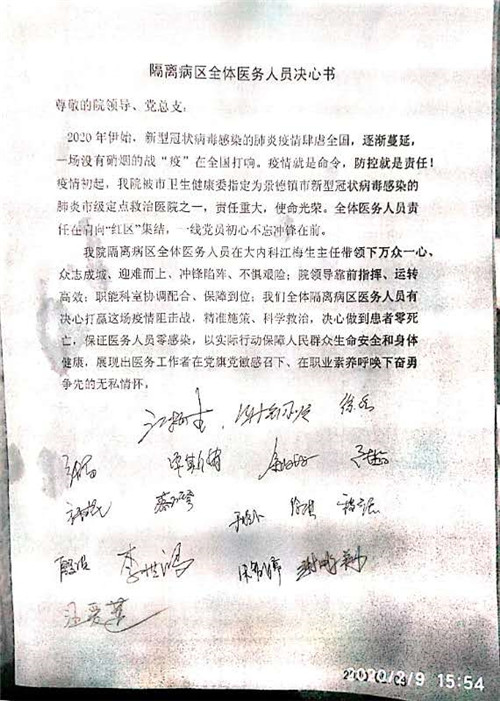 隔离病区全体医务人员决心书
尊敬的院领导、党总支:
2020年伊始,新型冠状病毒感染的肺炎疫情肆虐全国,逐渐蔓延,
一场没有硝烟的战“疫”在全国打响。疫情就是命令,防控就是责任!
疫情初起,我院被市卫生健康委指定为景德镇市新型冠状病毒感染的
肺炎市级定点救治医院之一,责任重大,使命光荣。全体医务人员责
任在肩向“红区”集结,一线党员初心不忘冲锋在前。
我院隔离病区全体医务人员在大内科江梅生主任带领下万众一心、
众志成城、迎难而上、冲锋陷阵、不惧艰险;院领导靠前指挥、运转
高效;职能科室协调配合、保障到位;我们全体隔离病区医务人员有
决心打赢这场疫情阻击战,精准施策、科学救治,决心做到患者零死
亡,保证医务人员零感染,以实际行动保障人民群众生命安全和身体
健康,展现出医务工作者在党旗党敏感召下、在职业素养呼唤下奋勇
争先的无私情怀。
江梅生
李世鸿
2020/2/9 15:54